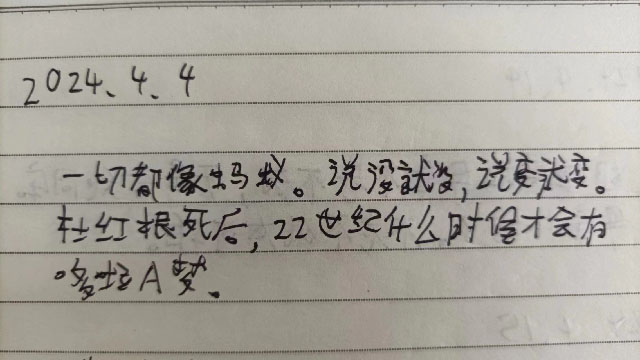 2024、4、4
一切都像蚂蚁。说没就没,说变就变。
杜红根死后,22世纪什么时候才会有
哆啦A梦。